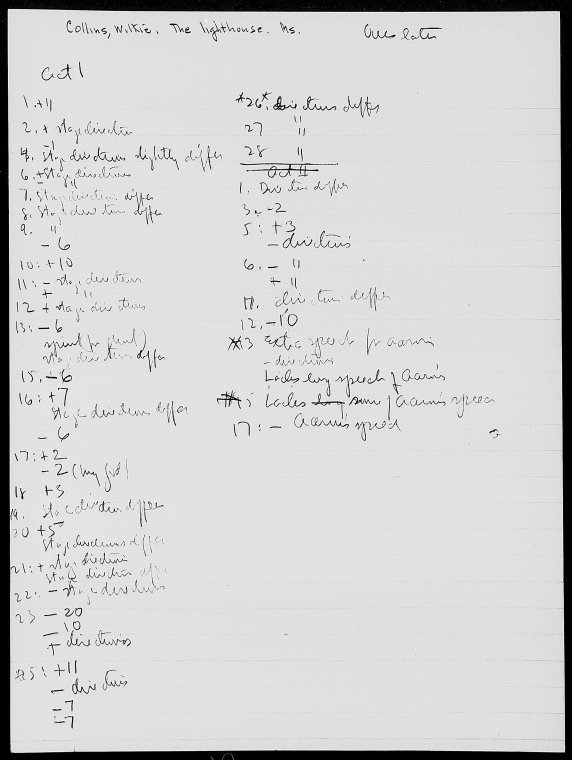 Collins, Wilkie. The lighthouse. Ms.
later
Act I
1. + 11
2. + stage direction
4. stage directions slightly differ
6. + stage directions
7. Stage directions differ
8. Stage directions differ
9. "
- 6
10: + 10
11: - stage directions
+ "
12 + stage directions
13: - 6
stage directions differ
15. - 6
16: + 7
Stage directions differ
- 6
17: + 2
- 2 (my God)
18 + 3
19. Stage direction differs
20 + 5
Stage directions differ
21: + stage directions
stage direction differs
22: - stage directions
23 - 20
- 10
+ directions
25: + 11
- directions
- 7
- 7
*26*. directions differ
27 "
28 "
Act II
1. Direction differs
3. - 2
5: + 3
- directions
6. - "
+ "
11. direction differs
12. - 10
13 Extra speech for Aaron's
- directions
Lacks long speech of Aaron's
15 Lacks some of Aaron's speech
17: - Aaron's speech